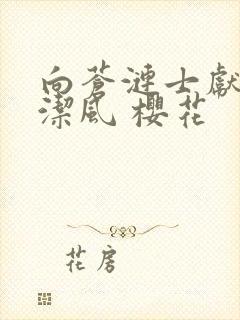 向蒼漣士獻
潔風 櫻花
花房